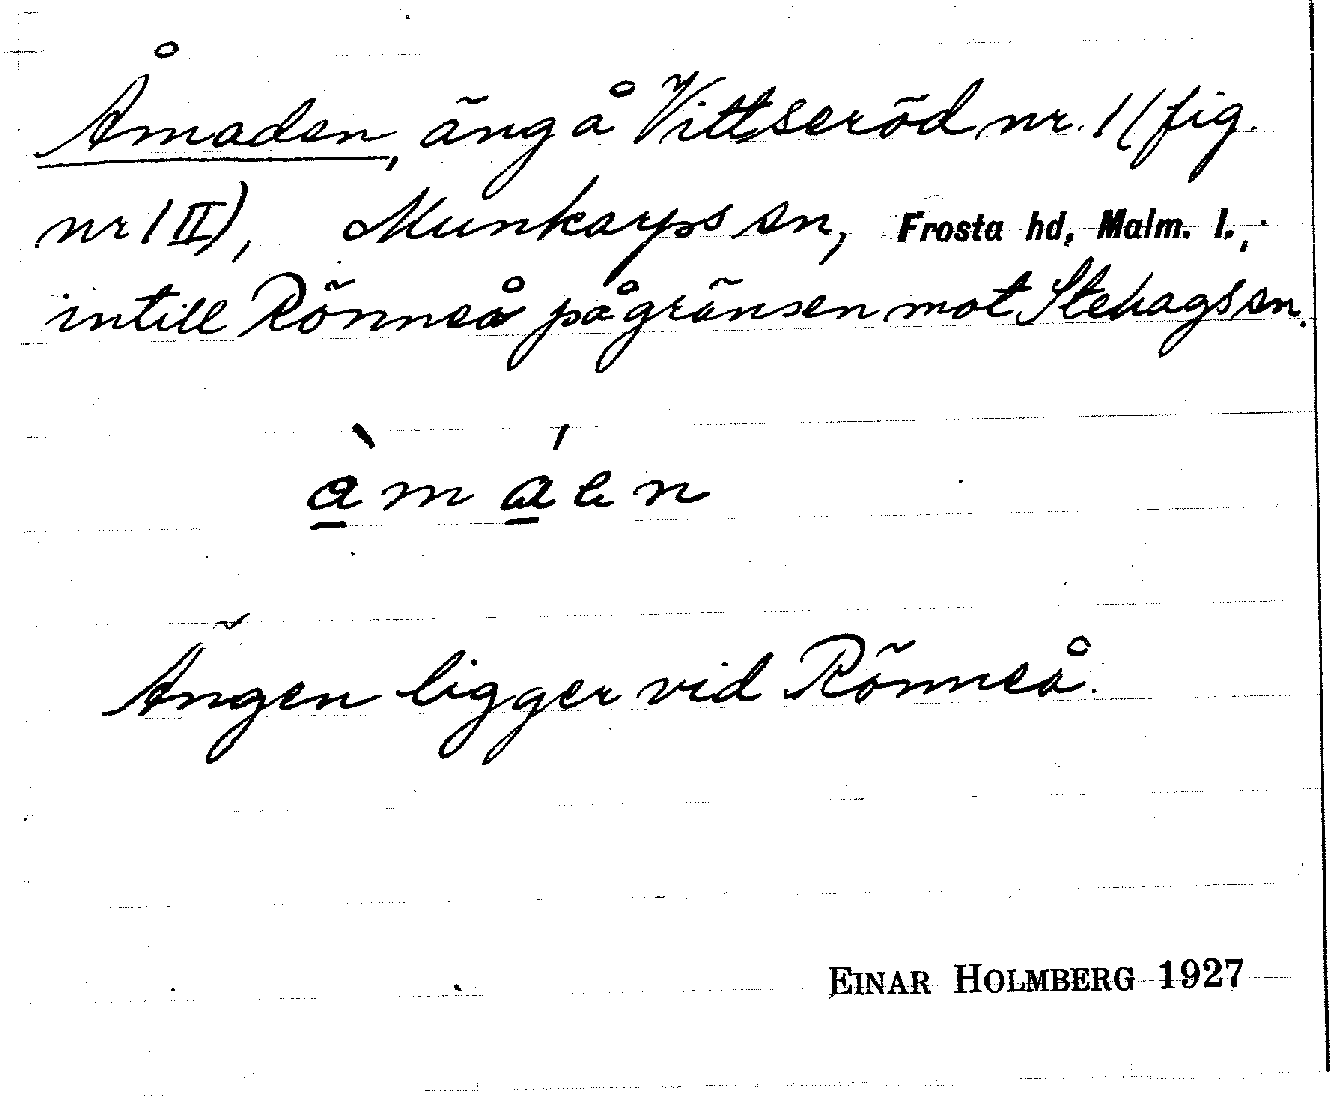 Åmaden, äng å Vittseröd nr. 1 (fig.
nr 1 II), Munkarps sn, Frosta hd, Malm. l.,
intill Rönneå på gränsen mot Stehags sn.
à̱ m á̱ e n
Ängen ligger vid Rönneå.
EINAR HOLMBERG 1927